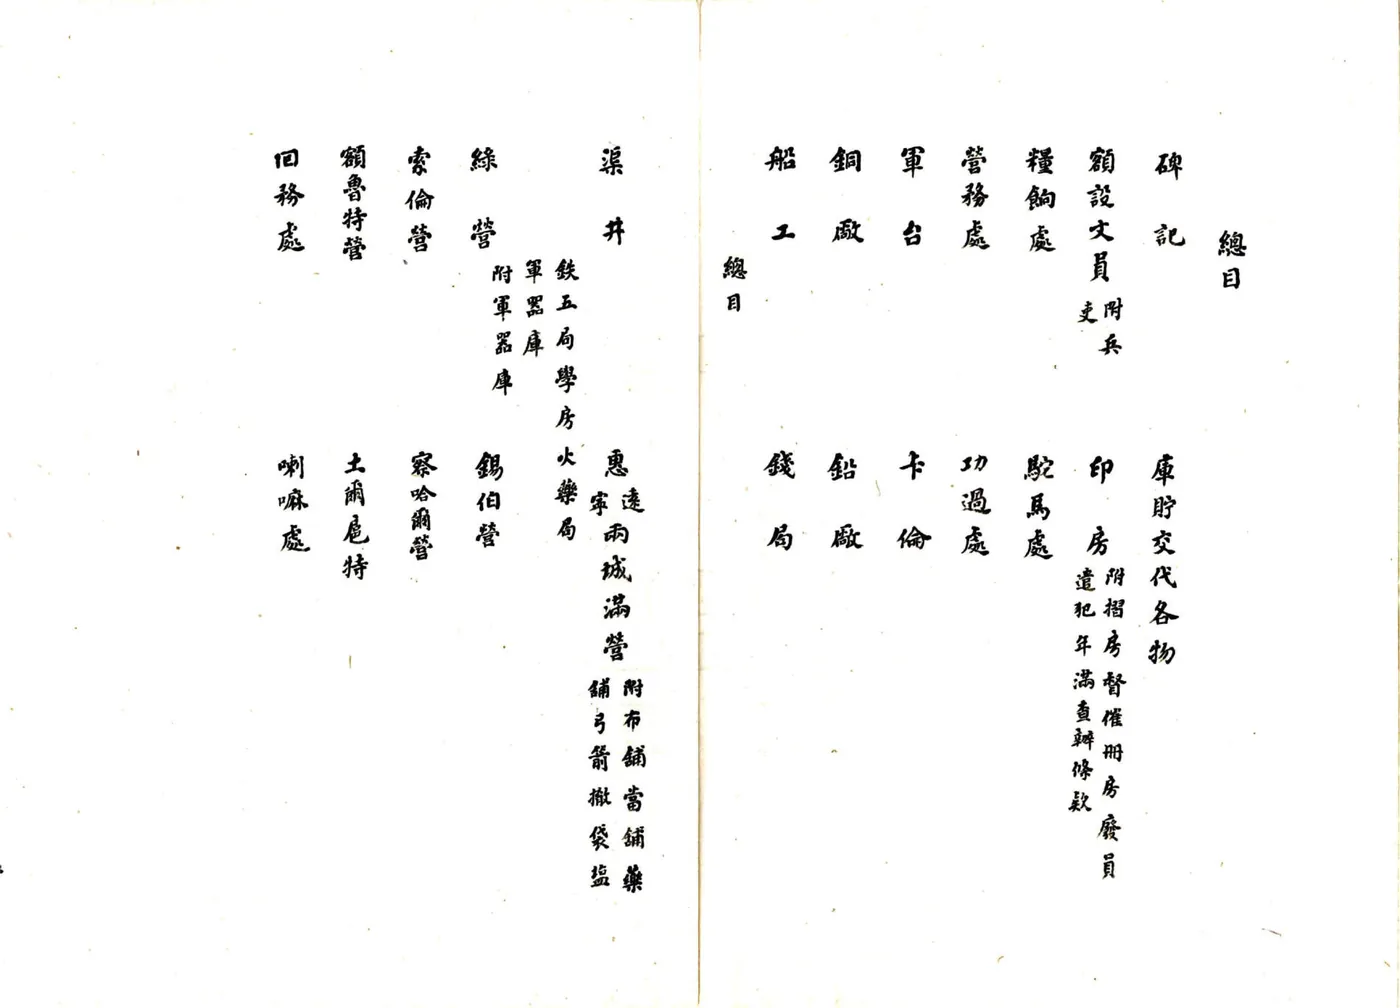 總目
碑記
庫貯交代各物
額設文員
附兵
吏
印房
附摺房督催冊房廢員
遣犯年滿查辦條款
糧餉處
駝馬處
營務處
功過處
軍台
卡倫
銅廠
鉛廠
船工
錢局
總目
渠井
惠
遠
寧
兩城滿營
附布舖當舖藥
舖弓箭撒袋盐
鉄五局學房火藥局
軍器庫
綠營
附軍器庫
錫伯營
索倫營
察哈爾營
額魯特營
土爾扈特
回務處
喇嘛處